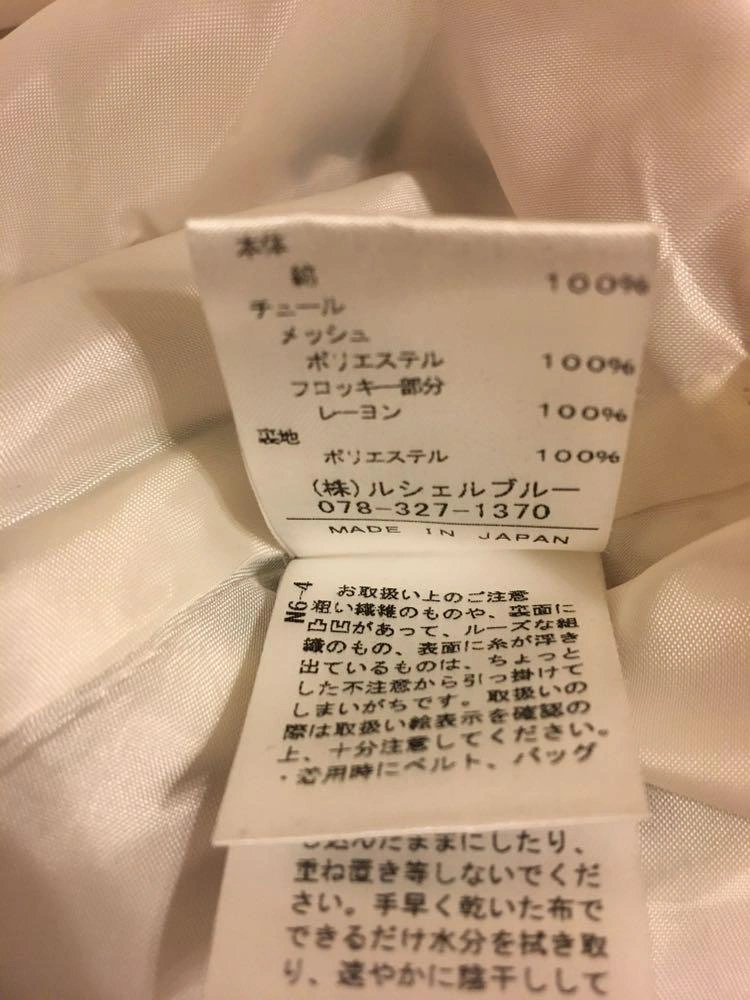 本体
綿 100%
チュール
メッシュ
ポリエステル 100%
フロッキー部分
レーヨン 100%
裏地
ポリエステル 100%
(株)ルシェルブルー
078-327-1370
MADE IN JAPAN
N6-4
お取扱い上のご注意
粗い繊維のものや、表面に
凸凹があって、ルーズな組
織のもの、表面に糸が浮き
出ているものは、ちょっと
した不注意から引っ掛けて
しまいがちです。取扱いの
際は取扱い絵表示を確認の
上、十分注意してください。
・着用時にベルト、バッグ
込んだままにしたり、
重ね置き等しないでくだ
さい。手早く乾いた布で
できるだけ水分を拭き取
り、速やかに陰干しして